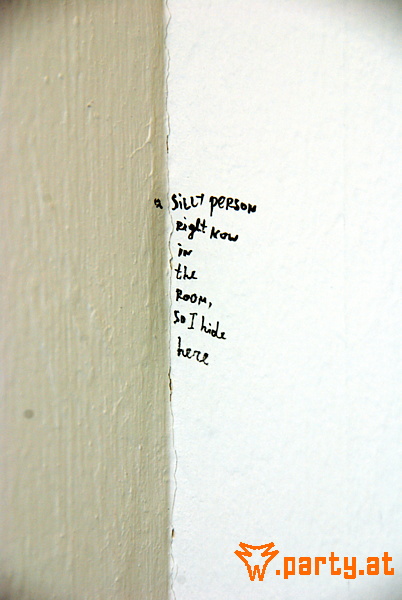 a SiLLY PERSON
Right Now
in
the
ROOM,
so I hide
here
W.party.at